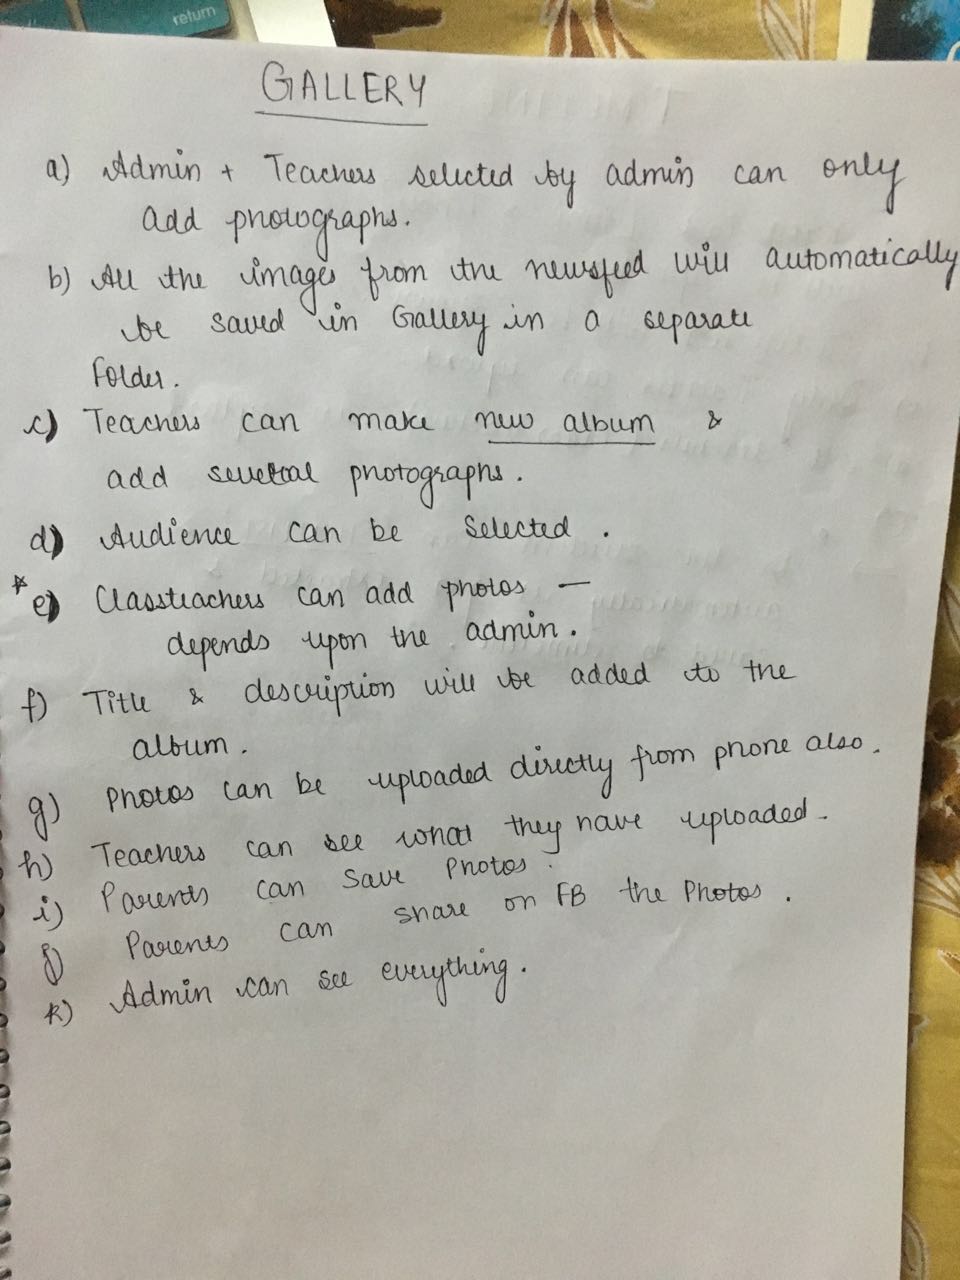 return
GALLERY
a) Admin + Teachers selected by admin can only
add photographs.
b) All the images from the newsfeed will automatically
be saved in Gallery in a separate
Folder.
c) Teachers can make new album &
add several photographs.
d) Audience can be selected.
* e) Classteachers can add photos —
depends upon the admin.
f) Title & description will be added to the
album.
g) Photos can be uploaded directly from phone also.
h) Teachers can see what they have uploaded.
i) Parents can save Photos.
j) Parents can share on FB the Photos.
k) Admin can see everything.